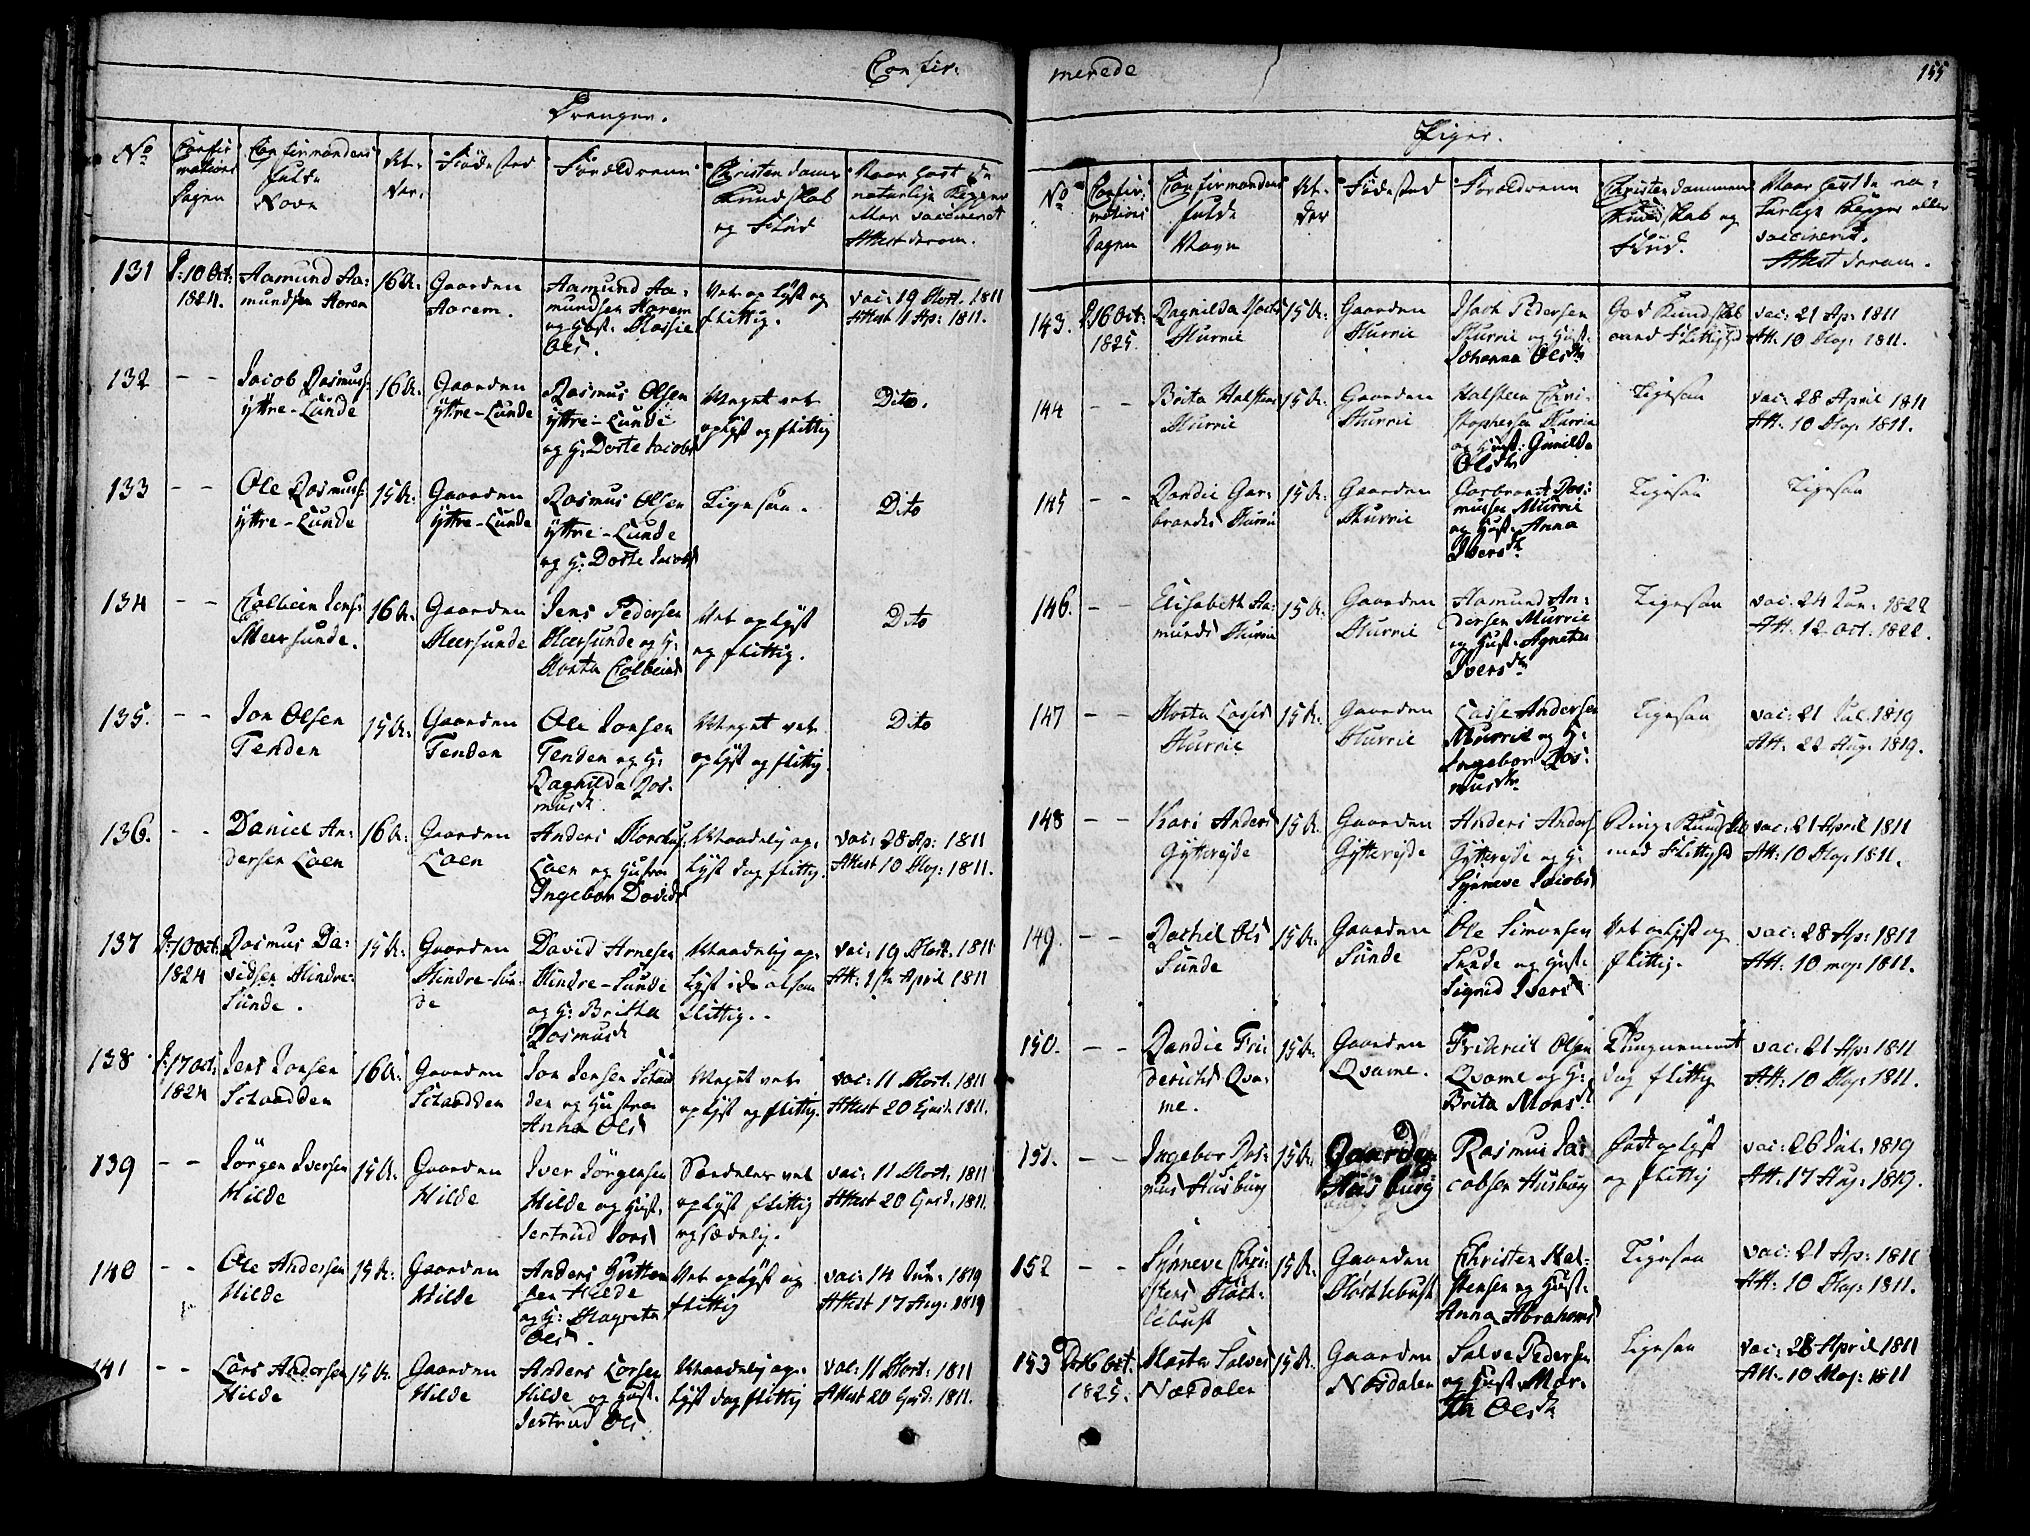 Confir-
Drenger.
No
Confir
mations
Dagen
Confirmandens
fulde
Navn
Al-
der.
Födested
Forældrenne
Christendoms
Kundskab
og Flid
Naar havt de
naturlige Kopper
eller vaccineret
Attest derom.
131
D: 10 Oct:
1824.
Aamund Aa-
mundsen Aarem
16 A:
Gaarden
Aarem.
Aamund Aa-
mundsen Aarem
og Hust:
Ols.
Vel oplyst og
flittig.
vac: 19 Mart. 1811
Attest 1 Ap: 1811.
132
– –
Jacob Rasmus:
Yttre-Lunde
16 A:
Gaarden
Yttre-Lunde
Rasmus Olsen
Yttre-Lunde
og H: Dorte Jacobs
Meget vel
oplyst og flittig
Dito.
133
– –
Ole Rasmus:
Yttre-Lunde
15 A:
Gaarden
Yttre-Lunde
Rasmus Olsen
Yttre-Lunde
og H: Dorte Jacobs
Ligesaa.
Dito
134
– –
Colbein Jens:
Meersunde.
16 A:
Gaarden
Meersunde
Jens Pedersen
Meersunde og H:
Marta Colbeins
Vel oplyst
og flittig.
Dito
135.
– –
Jon Olsen
Tenden
15 A:
Gaarden
Tenden
Ole Jonsen
Tenden og H:
Ragnilda Ras-
musd.
Meget vel
oplyst og flittig.
Dito
136.
– –
Daniel An-
dersen Loen
16 A:
Gaarden
Loen
Anders
Loen og Hustru
Ingebor Davids
Maadelig op-
lyst dog flittig.
vac: 28 Ap: 1811
Attest 10 Maj: 1811.
137
D: 10 Oct.
1824
Rasmus Da-
vidsen Mindre-
Sunde.
15 A:
Gaarden
Mindre-Sun-
de
David Arnesen
Mindre-Sunde
og H: Britha
Rasmusd
Maadelig op-
lyst
flittig.
vac: 19 Mart: 1811
Att: 1ste April 1811
138
D: 17 Oct:
1824
Jens Jonsen
Schaadden
16 A:
Gaarden
Schaadden
Jon Jensen Schaad
den og Hustru
Anna Ols
Meget vel
oplyst og flittig.
vac: 11 Mart. 1811
Attest 20 Ejusd. 1811.
139
– –
Jörgen Iversen
Hilde
15 A:
Gaarden
Hilde
Iver Jörgensen
Hilde og Hust.
Jertrud Jons
Særdeles vel
oplyst flittig
og sædelig.
vac: 11 Mart. 1811
Attest 20 Ejusd. 1811.
140
– –
Ole Andersen
Hilde
15 A:
Gaarden
Hilde
Anders Gutton
sen Hilde
og H: Magreta
Ols.
Vel oplyst og
flittig
vac: 14 Jun: 1819
Attest 17 Aug: 1819
141
– –
Lars Andersen
Hilde
15 A:
Gaarden
Hilde
Anders Larsen
Hilde og Hust.
Jertrud Ols.
Maadelig op-
lyst dog flittig
vac: 11 Mart: 1811
Attest 20 Ejusd: 1811.
merede
155
Piger.
No
Confir-
mations
Dagen
Confirmandens
fulde
Navn
Al-
der
Födested
Forældrenne
Christendommens
Kundskab og
Flid.
Naar havt de na-
turlige Kopper eller
vaccineret.
Attest derom.
143.
D. 16 Oct:
1825.
Ragnilda Isachs
Murrie
15 A:
Gaarden
Murrie
Isach Pedersen
Murrie og Hust:
Johanna Olsdr
God Kundskab
med Flittighed
vac: 21 Ap: 1811
Att. 10 Maj: 1811.
144
– –
Brita Halstens
Murrie
15 A:
Gaarden
Murrie
Halsteen Chri-
stophersen Murrie
og Hust: Gunilda
Olsdr
Ligesaa
vac: 28 April 1811
Att. 10 Maj: 1811.
145
– –
Randie Gar-
brands Murrie
15 A:
Gaarden
Murrie
Garbrand Ras-
musen Murrie
og Hust: Anna
Iversdr
Ligesaa
Ligesaa
146.
– –
Elisabeth Aa-
munds Murrie
15 A:
Gaarden
Murrie
Aamund An-
dersen Murrie
og Hust. Agneta
Iversdr
Ligesaa
vac. 24 Jun: 1822
Att. 12 Oct. 1822.
147
– –
Marta Lasses
Murrie
15 A:
Gaarden
Murrie
Lasse Andersen
Murrie og H:
Ingebor Ras-
musdr
Ligesaa
vac: 21 Jul: 1819
Att: 22 Aug: 1819.
148
– –
Kari Anders
Gytterejde
15 A:
Gaarden
Gytterejde
Anders Anders.
Gytterejde og H:
Synneve Jacobs
Ring: Kundskab
med Flittighed
vac: 21 April 1811
Att: 10 Maj: 1811.
149.
– –
Rachel Ols
Sunde
15 A:
Gaarden
Sunde
Ole Simonsen
Sunde og Hust:
Sigrid Ivers
Vel oplyst og
flittig.
vac: 28 Ap: 1811
Att: 10 maj: 1811.
150.
– –
Randie Fri-
derichs Qva-
me.
15 A:
Gaarden
Qvame.
Friderich Olsen
Qvame og H:
Brita Monsd
Tungnemmet
dog flittig
vac: 21 Ap: 1811
Att: 10 Maj: 1811.
151.
– –
Ingebor Ras-
mus Husburg
15 A:
Gaarden
Husburg
Rasmus Ja-
cobsen Husbürg
Godt oplyst
og flittig
vac: 26 Jul: 1819
Att: 17 Aug: 1819.
152
– –
Synneve Chri-
stens Mosth-
lebust
15 A:
Gaarden
Mosthlebust
Christen Hal-
stensen og Hust.
Anna Abrahams
Ligesaa
vac: 21 Ap: 1811
Att: 10 Maj: 1811.
153
D. 16 Oct.
1825.
Marta Salves
Næsdalen
15 A:
Gaarden
Næsdalen
Salve Pedersen
og Hust: Mar-
ta Olsdr
Ligesaa
vac: 28 April 1811
Att: 10 Maj: 1811